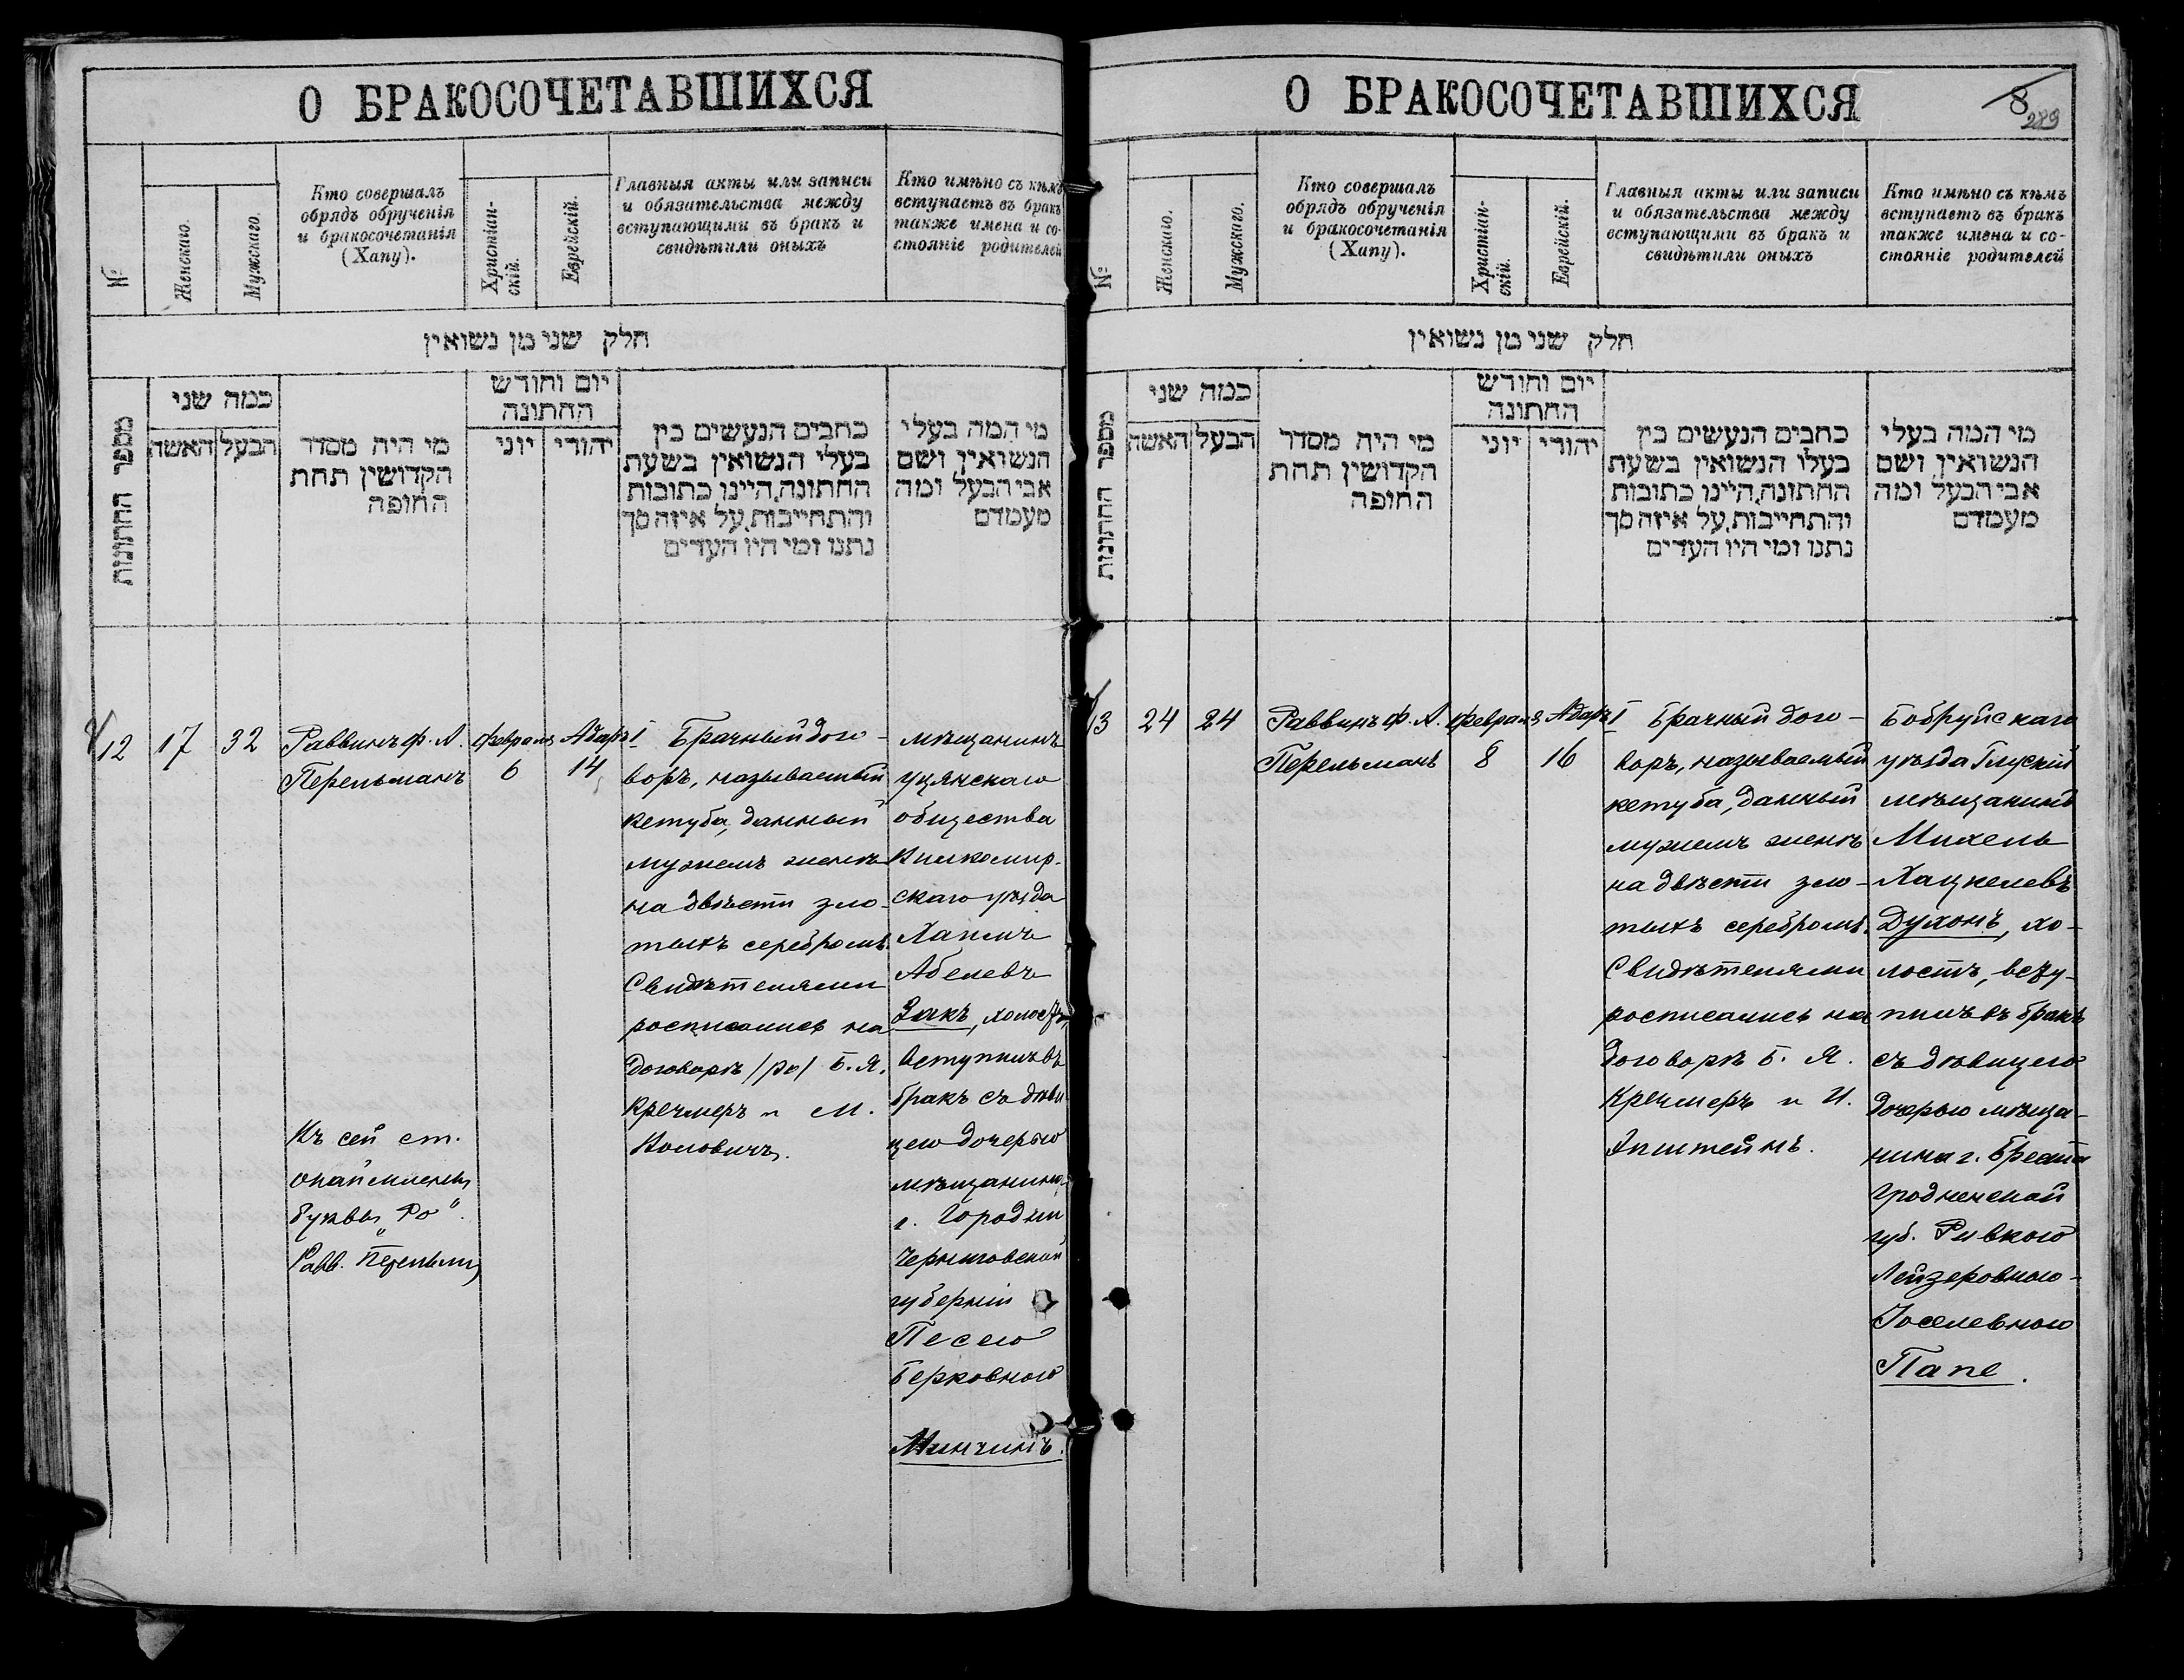 О БРАКОСОЧЕТАВШИХСЯ
№
Женскаго.
Мужскаго.
Кто совершалъ
обрядъ обрученія
и бракосочетанія
(Хапу).
Христіан-
скій.
Еврейскій.
Главныя акты или записи
и обязательства между
вступающими въ бракъ и
свидѣтили оныхъ
Кто имѣно съ кѣмъ
вступаетъ въ бракъ
также имена и со-
стояніе родителей
חלק שני מן נשואין
מספר החתונות
כמה שני
האשה
הבעל
מי היה מסדר
הקדושין תחת
החופה
יום וחודש
החתונה
יוני
יהודי
כתבים הנעשים בין
בעלי הנשואין בשעת
החתונה, היינו כתובות
והתחייבות, על איזה סך
נתנו ומי היו העדים
מי המה בעלי
הנשואין, ושם
אבי הבעל ומה
מעמדם
12
17
32
Раввинъ Ф. А.
Перельманъ
Февраля
6
Адаръ I
14
Брачный дого-
воръ, называемый
кетуба, данный
мужемъ женѣ
на двѣсти зло-
тыхъ серебромъ.
Свидѣтелями
росписались на
договорѣ /ро/ Б. Я.
Кречмеръ и М.
Воловичъ.
мѣщанинъ
Уцянскаго
общества
Вилкомир-
скаго уѣзда
Хаимъ
Абелевъ
Закъ, холостъ,
вступилъ въ
бракъ съ дѣви
цею дочерью
мѣщанина
г. Городни
Черниговской
губерніи
Песею
Берковною
Минчинъ.
Къ сей ст.
буквы „Ро".
Равв.
О БРАКОСОЧЕТАВШИХСЯ
8
289
№
Женскаго.
Мужскаго.
Кто совершалъ
обрядъ обрученія
и бракосочетанія
(Хапу).
Христіан-
скій.
Еврейскій.
Главныя акты или записи
и обязательства между
вступающими въ бракъ и
свидѣтили оныхъ
Кто имѣно съ кѣмъ
вступаетъ въ бракъ
также имена и со-
стояніе родителей
חלק שני מן נשואין
מספר החתונות
כמה שני
האשה
הבעל
מי היה מסדר
הקדושין תחת
החופה
יום וחודש
החתונה
יוני
יהודי
כתבים הנעשים בין
בעלו הנשואין בשעת
החתונה, היינו כתובות
והתחייבות, על איזה סך
נתנו ומי היו העדים
מי המה בעלי
הנשואין, ושם
אבי הבעל ומה
מעמדם
13
24
24
Раввинъ Ф. А.
Перельманъ
Февраля
8
Адаръ I
16
Брачный дого-
воръ, называемый
кетуба, данный
мужемъ женѣ
на двѣсти зло-
тыхъ серебромъ.
Свидѣтелями
росписались на
договорѣ Б. Я.
Кречмеръ и И.
Эпштейнъ.
Бобруйскаго
уѣзда Глускій
мѣщанинъ
Михель
Хацкелевъ
Духонъ, хо-
лостъ, всту-
пилъ въ бракъ
съ дѣвицею
дочерью мѣща-
нина г. Бреста
Гродненской
губ. Ривкою
Лейзеровною-
Іоселевною
Папе.